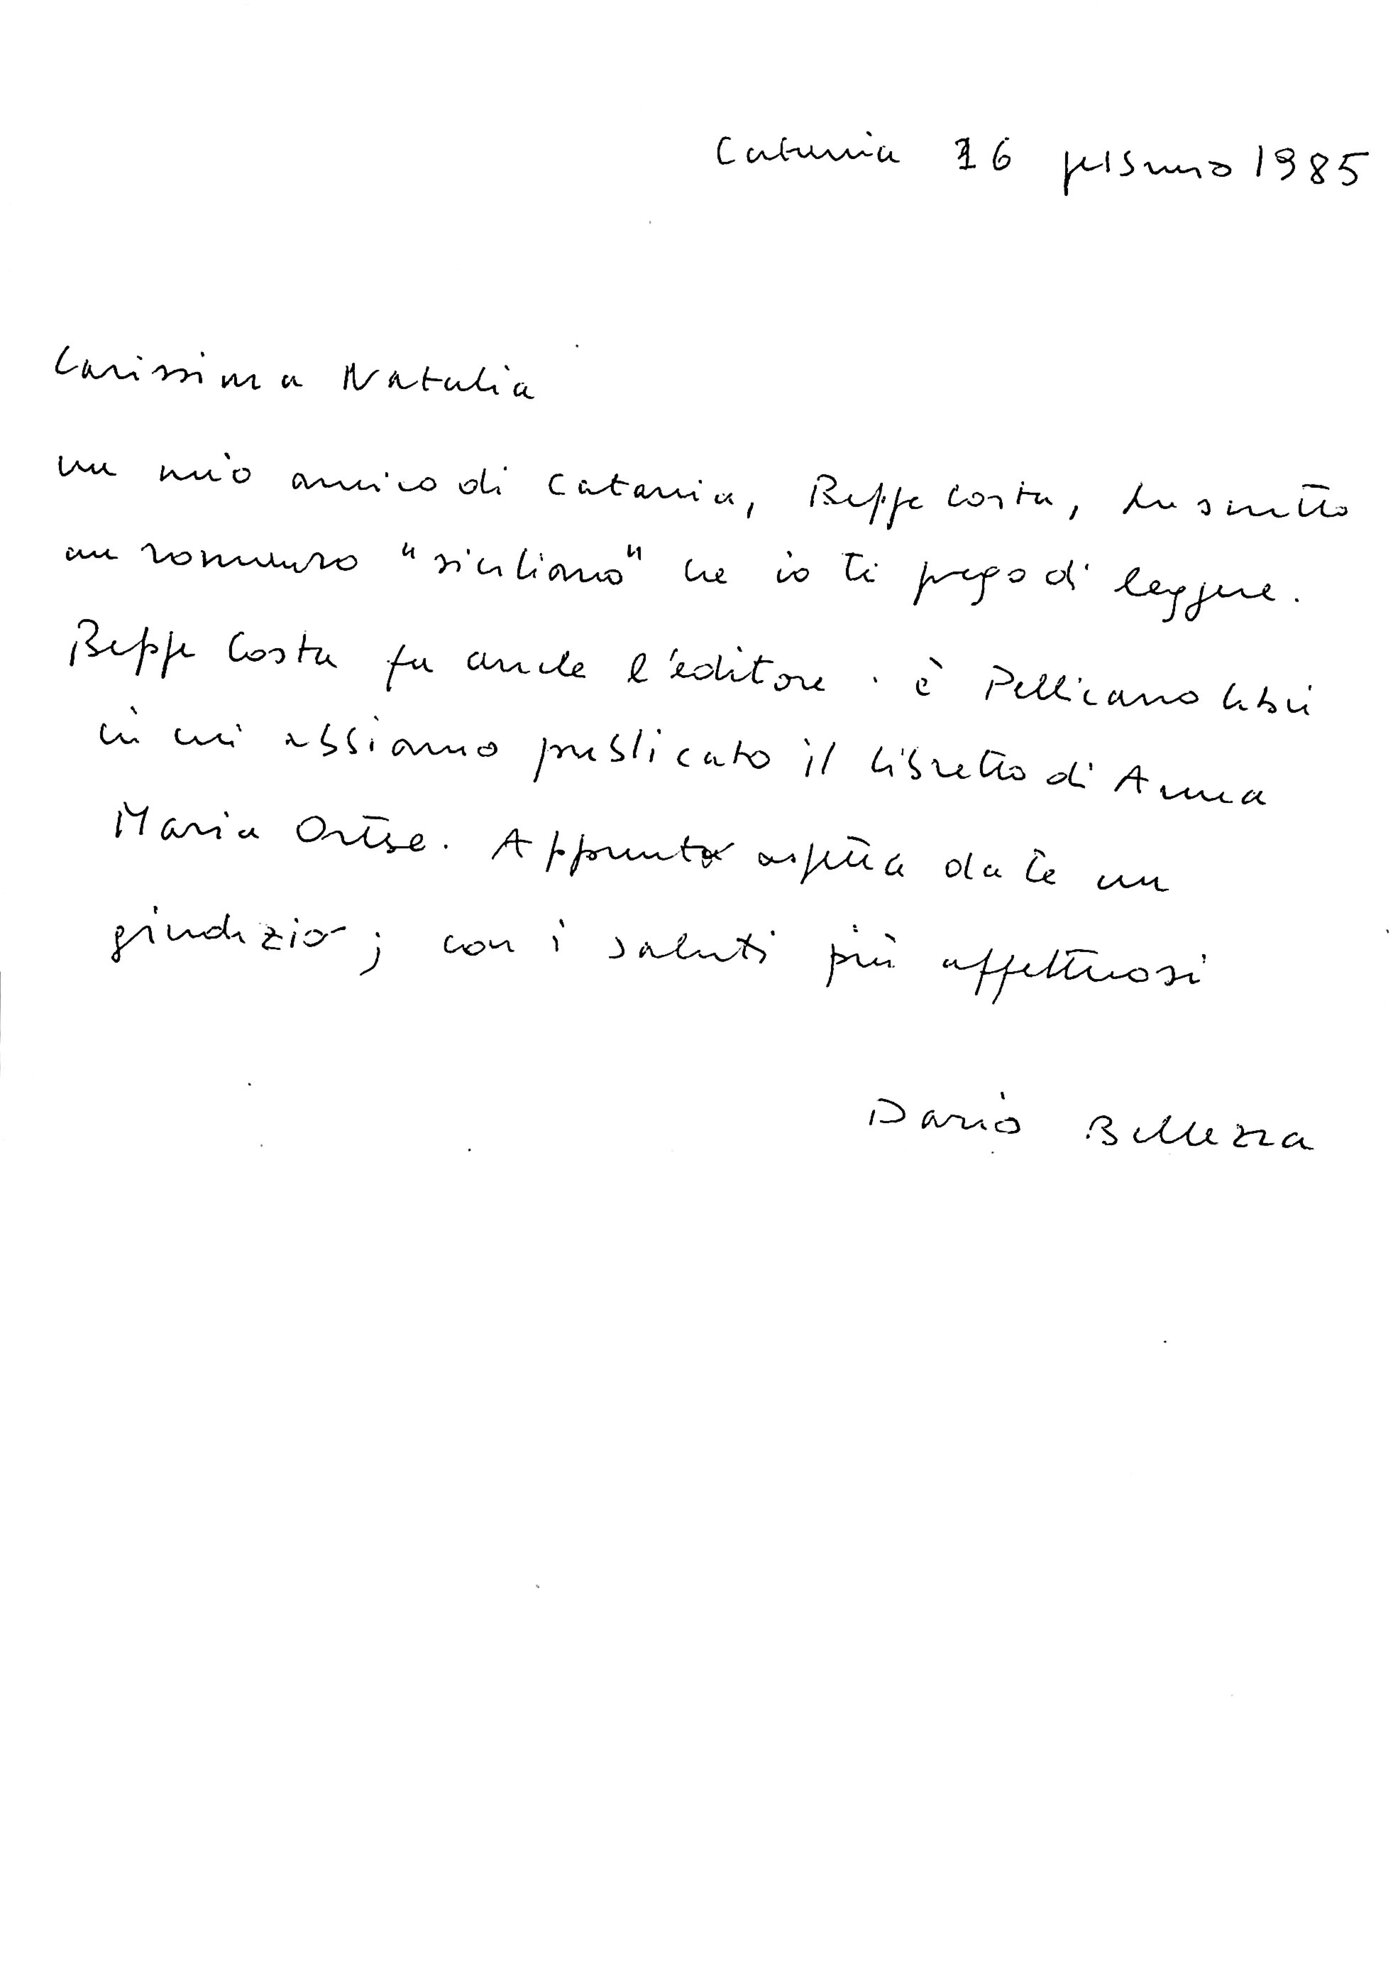 Catania 16 febbraio 1985
Carissima Natalia
un mio amico di Catania, Beppe Costa, ha scritto
un romanzo "siciliano" che io ti prego di leggere.
Beppe Costa fa anche l'editore. è Pellicano libri
in cui abbiamo pubblicato il libretto di Anna
Maria Ortese. Appunto aspetta da te un
giudizio; con i saluti più affettuosi
Dario Bellezza